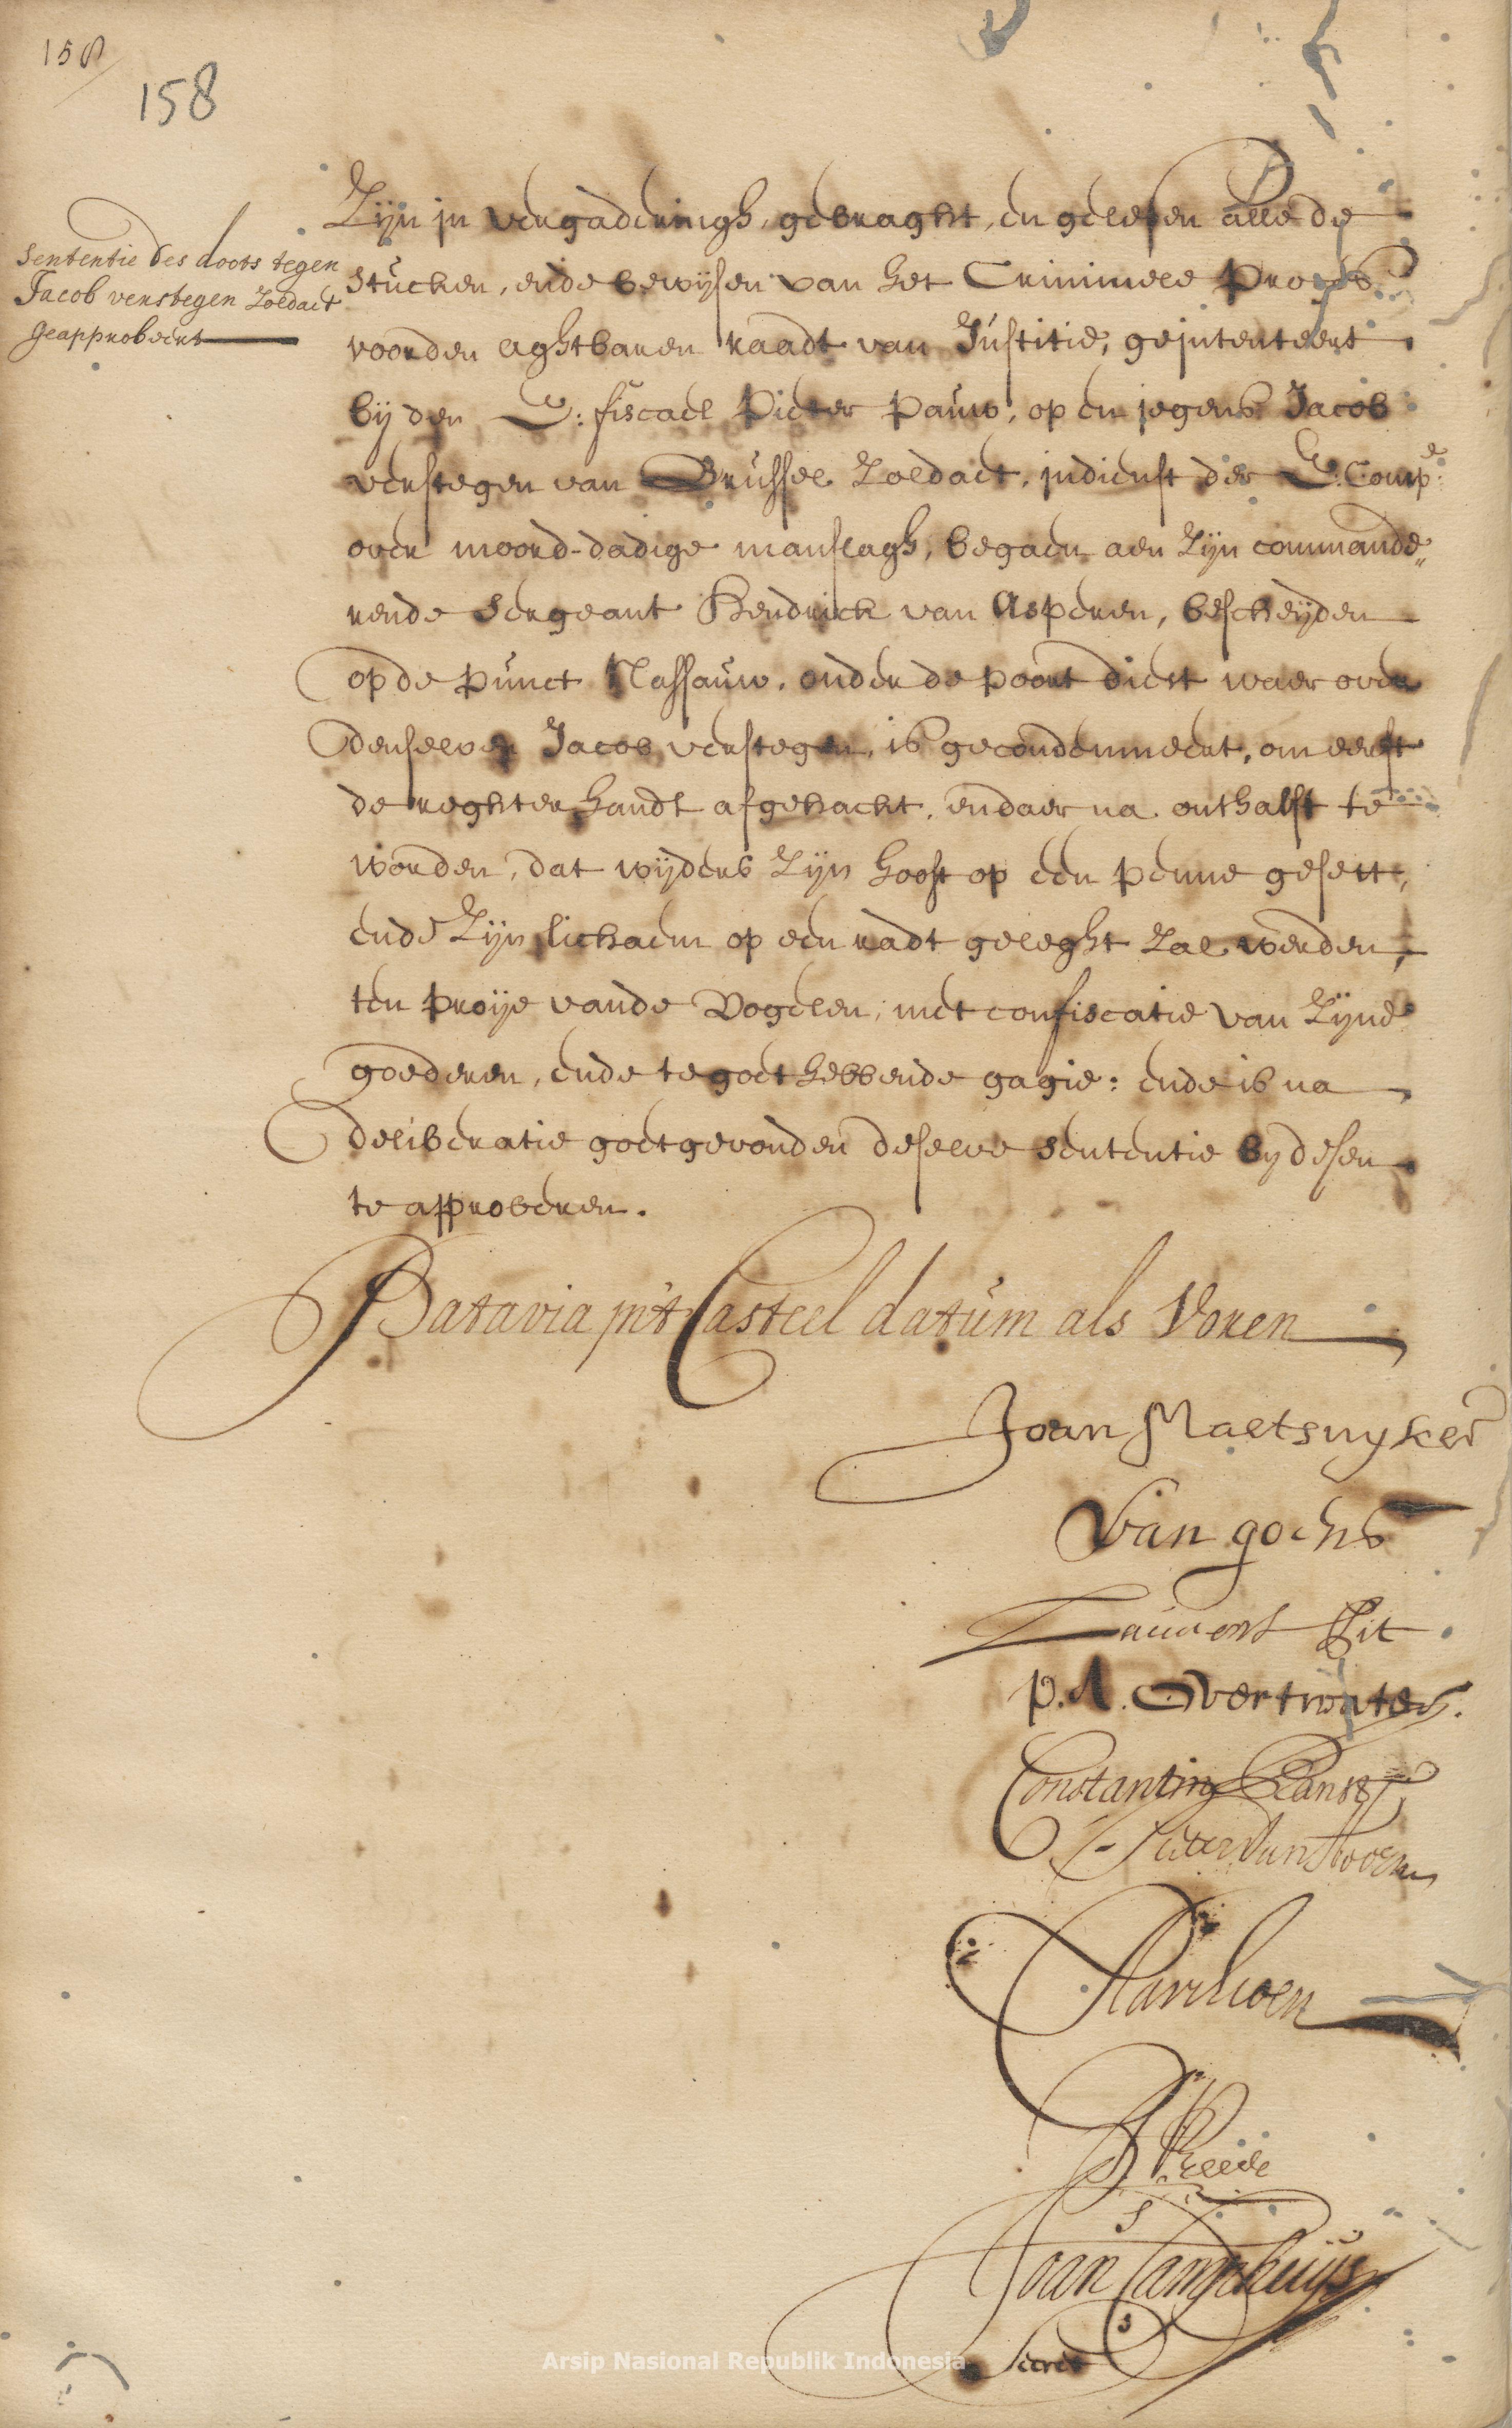 158
158
Sententie des doots tegen
Jacob verstegen Zoldaet
geapprobeert
Zijn in vergaderingh, gebraght, en gelesen alle de
stucken, ende bewijsen van het Criminele Proces
voorden aghtbaren raadt van Justitie, geintenteert
bij den E: fiscael Pieter Pauw, op en jegens Jacob
verstegen van Brussel Zoldaet, indienst der E: Compe:
over moord-dadige manslagh, begaen aen Zijn commande„
rende Sergeant Hendrick van Asperen, bescheijden
op de punct Nassauw, onder de poort diest waer over
denselven Jacob verstegen, is gecondemneert, om eerst
de reghter handt afgehackt, en daer na onthalst te
worden, dat wijders Zijn hooft op een penne gesett,
ende Zijn lichaem op een radt geleght Zal werden,
ten proije vande Vogelen, met confiscatie van Zijne
goederen, ende tegoet hebbende gagie: ende is na
deliberatie goetgevonden deselve sententie by desen
te approberen.
Batavia in't Casteel datum als Voren
Joan Maetsuyker
Van goens
Laurens Pit
P. A. Overtwater.
Constantin Ranst
Pieter van Hoorn
Joan Camphuijs
Secret
Arsip Nasional Republik Indonesia